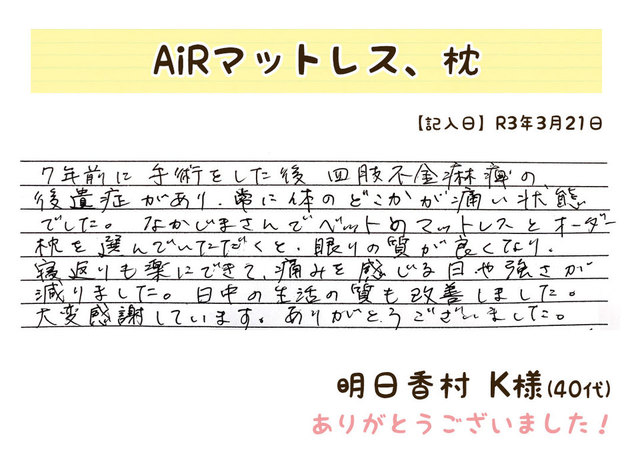 AiRマットレス、枕
【記入日】R3年3月21日
7年前に手術をした後 四肢不全麻痺の
後遺症があり、常に体のどこかが痛い状態
でした。なかじまさんでベットのマットレスとオーダー
枕を選んでいただくと、眠りの質が良くなり、
寝返りも楽にできて、痛みを感じる日や強さが
減りました。日中の生活の質も改善しました。
大変感謝しています。ありがとうございました。
明日香村 K様(40代)
ありがとうございました！